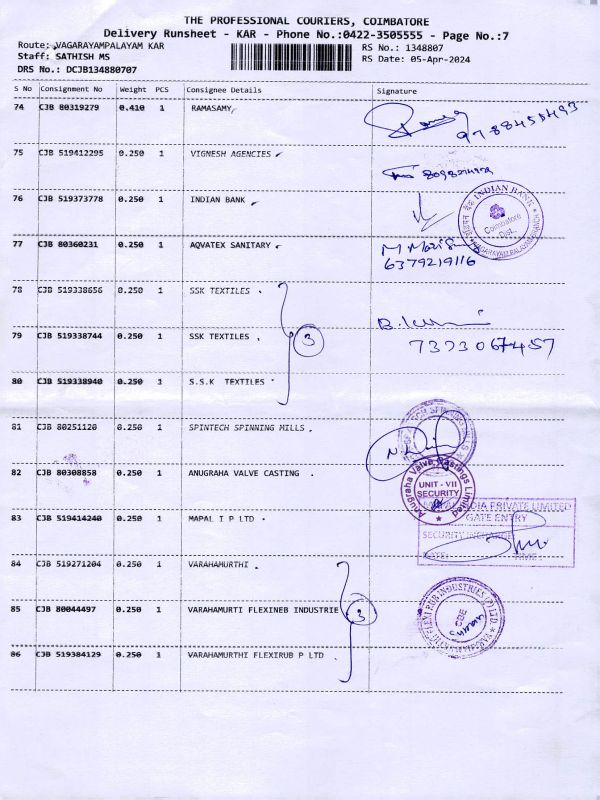 THE PROFESSIONAL COURIERS, COIMBATORE
Delivery Runsheet - KAR - Phone No.:0422-3505555 - Page No.:7
Route: VAGARAYAMPALAYAM KAR
RS No.: 1348807
Staff: SATHISH MS
RS Date: 05-Apr-2024
DRS No.: DCJB134880707
S No Consignment No Weight PCS Consignee Details Signature
74 CJB 80319279 0.410 1 RAMASAMY
75 CJB 519412295 0.250 1 VIGNESH AGENCIES
76 CJB 519373778 0.250 1 INDIAN BANK
INDIAN BANK
Coimbatore
Dist.
77 CJB 80360231 0.250 1 AQVATEX SANITARY
6379219116
78 CJB 519338656 0.250 1 SSK TEXTILES
79 CJB 519338744 0.250 1 SSK TEXTILES
3
7373067457
80 CJB 519338940 0.250 1 S.S.K TEXTILES
81 CJB 80251120 0.250 1 SPINTECH SPINNING MILLS
82 CJB 80308858 0.250 1 ANUGRAHA VALVE CASTING
Anugraha Valve Castings Limited
UNIT - VII
SECURITY
83 CJB 519414240 0.250 1 MAPAL I P LTD
INDIA PRIVATE LIMITED
GATE ENTRY
SECURITY INCHARGE
DATE: TIME:
84 CJB 519271204 0.250 1 VARAHAMURTHI
85 CJB 80044497 0.250 1 VARAHAMURTI FLEXINEB INDUSTRIE
3
CBE
86 CJB 519384129 0.250 1 VARAHAMURTHI FLEXIRUB P LTD